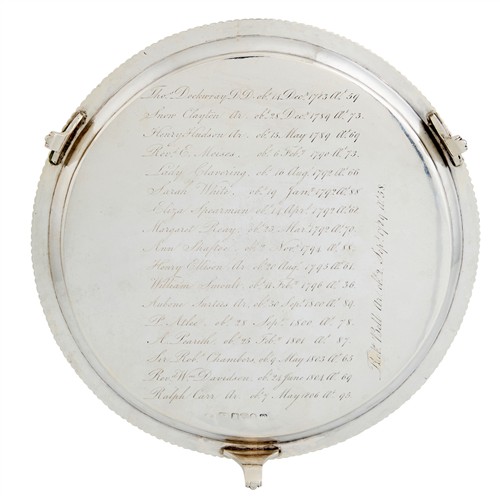 Thos. Dockwray D.D. obt. 14 Decr. 1783 Æt. 59
Snow Clayton Ar. obt. 25 Decr. 1789 Æt. 73.
Henry Hudson Ar. obt. 13 May 1789 Æt. 69
Revd. E. Moises. obt. 6 Feby. 1790 Æt. 73.
Lady Clavering. obt. 16 Aug. 1792 Æt. 66
Sarah White. obt. 19 Jany. 1792 Æt. 88
Eliza Spearman obt. 14 Apr. 1792 Æt. 61
Margaret Reay. obt. 23 Mar. 1792 Æt. 70.
Ann Shafto. obt. 2 Novr. 1794 Æt. 88.
Henry Ellison Ar. obt. 20 Aug. 1795 Æt. 61.
William obt. 11 Feby. 1796 Æt. 36
Aubone Surtees Ar. obt. 30 Sepr. 1800 Æt. 89.
P. Atlee. obt. 28 Sepr. 1800 Æt. 78.
A. Pearith. obt. 23 Feby. Æt. 87.
Sir Robt. Chambers, obt. 9 May 1803 Æt. 65
Revd. Wm. Davidson. obt. 24 June 1804 Æt. 69
Ralph Carr Ar. obt. 7 May 1806 Æt. 95.
Robt. Ar. obt. 2 Sepr. Æt. 58